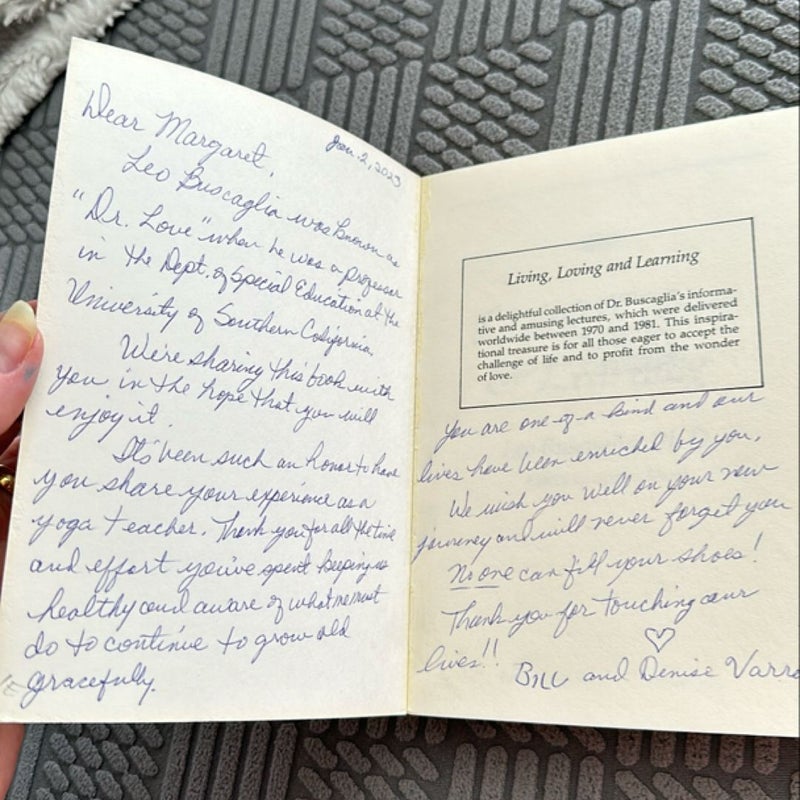 Dear Margaret,
Jan. 2, 2023
Leo Buscaglia was known as
"Dr. Love" when he was a professor
in the Dept. of Special Education at the
University of Southern California.
We're sharing this book with
you in the hope that you will
enjoy it.
It's been such an honor to have
you share your experience as a
yoga teacher. Thank you for all the time
and effort you've spent keeping us
healthy and aware of what we must
do to continue to grow old
gracefully.
Living, Loving and Learning
is a delightful collection of Dr. Buscaglia's informa-
tive and amusing lectures, which were delivered
worldwide between 1970 and 1981. This inspira-
tional treasure is for all those eager to accept the
challenge of life and to profit from the wonder
of love.
You are one-of-a kind and our
lives have been enriched by you.
We wish you well on your new
journey and will never forget you
No one can fill your shoes!
Thank you for touching our
lives!!
Bill and Denise